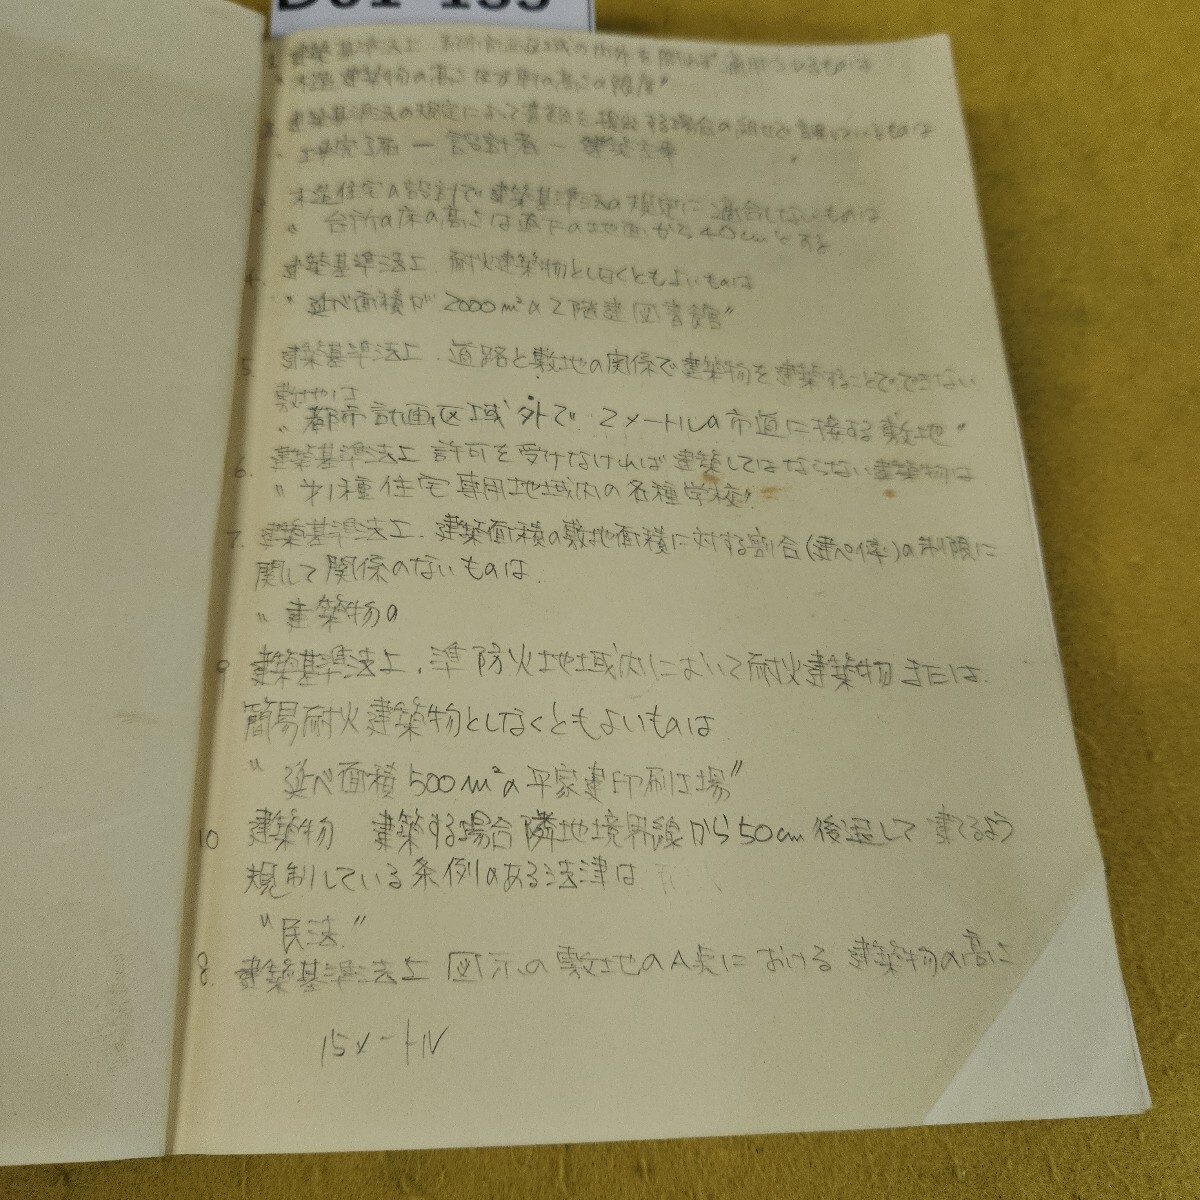 D01-135
1. 建築基準法上、都市計画区域の内外を問わず適用されるものは
"木造建築物の高さ及び軒の高さの限度"
2. 建築基準法の規定によって書類を提出する場合の組せで誤っているものは
" 工事完了届 ー 設計者 ー 建築主事
3. 木造住宅の設計で建築基準法の規定に適合しないものは
" 台所の床の高さは直下の地面から40cmとする
4. 建築基準法上、耐火建築物としなくともよいものは
" 延べ面積が2000m²の2階建図書館"
5. 建築基準法上、道路と敷地の関係で建築物を建築することでできない
敷地は
"都市計画区域外で 2メートルの市道に接する敷地"
6. 建築基準法上 許可を受けなければ建築してはならない建築物は
" 第1種住宅専用地域内の各種学校"
7. 建築基準法上、建築面積の敷地面積に対する割合(建ペい率)の制限に
関して関係のないものは、
" 建築物の
9 建築基準法上、準防火地域内において耐火建築物または
簡易耐火建築物としなくともよいものは
" 延べ面積500m²の平家建印刷工場"
10 建築物 建築する場合隣地境界線から50cm後退して建てるよう
規制している条例のある法律は
"民法"
8. 建築基準法上 図示の敷地のA点における建築物の高さ
15メートル